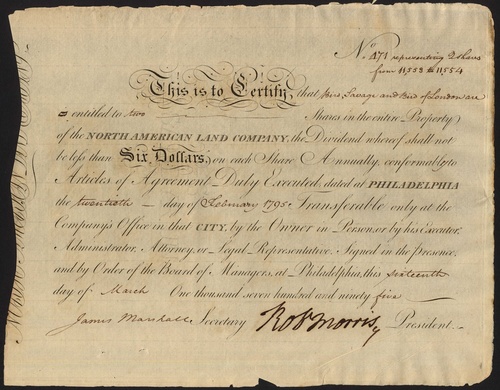 No 471 representing 2 shares
from 11553 to 11554
This is to Certify, that Mrs Savage and Bird of London are
entitled to two Shares in the entire Property
of the NORTH AMERICAN LAND COMPANY, the Dividend whereof shall not
be less than Six Dollars, on each Share Annually, conformably to
Articles of Agreement Duly Executed, dated at PHILADELPHIA
the twentieth day of February 1795 Transferable only at the
Company's Office in that CITY, by the Owner in Person, or by his Executor,
Administrator, Attorney, or Legal Representative. Signed in the presence,
and by Order of the Board of Managers, at Philadelphia, this sixteenth
day of March One thousand seven hundred and ninety five
James Marshall Secretary Rob Morris President.